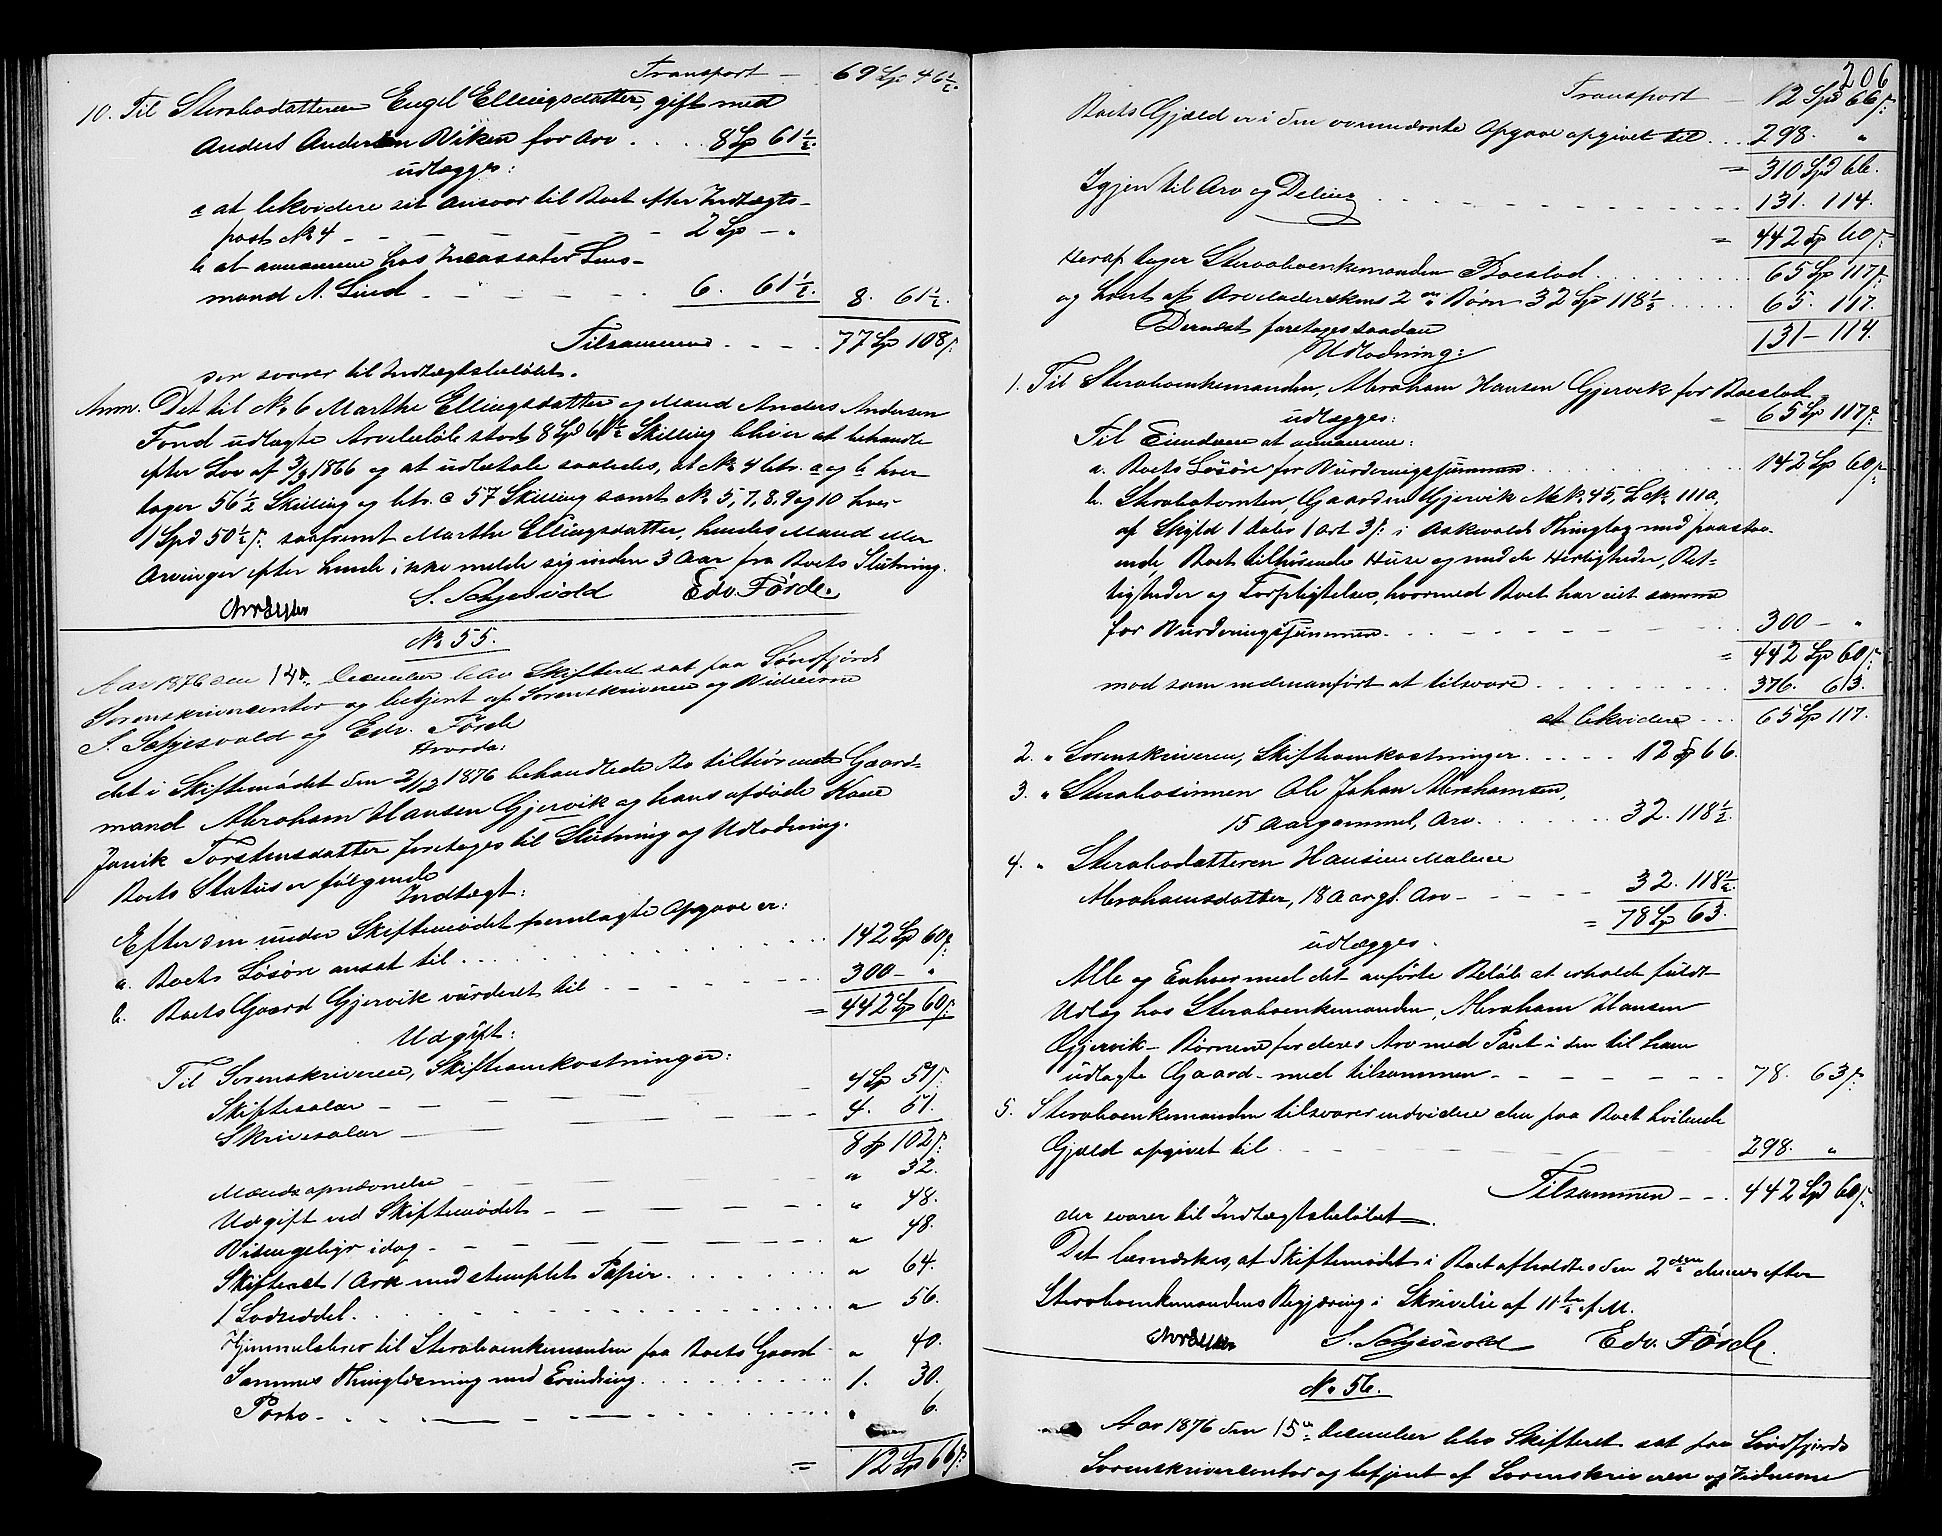 Transport — 69 Sp 46½.
10. Til Sterbodatteren Engel Ellingsdatter, gift med
Anders Andersen Viken for Arv . . . . 8 Sp 61½.
udlægges:
a at likvidere sit Ansvar til Boet efter Indtægts-
post No 4 - - - - - 2 Sp — "
b at annamme hos Incassator Lens-
mand A. Lind - - - - 6. 61½. 8. 61½.
Tilsammen . . . . 77 Sp 108 s.
der svarer til Indtægtsbeløbet.
Anm. Det til No 6 Marthe Ellingsdatter og Mand Anders Andersen
Fond udlagte Arvebeløb stort 8 Spd 61½ Skilling bliver at behandle
efter Lov af 3/3 1866 og at udbetale saaledes, at No 4 litr. a og b hver
tager 56½ Skilling og litr. c 57 Skilling samt No 5, 7, 8, 9 og 10 hver
1 Spd 50½ s. saafremt Marthe Ellingsdatter, hendes Mand eller
Arvinger efter hende ikke melde sig inden 3 Aar fra Boets Slutning.
S. Schjesvold Edv. Førde.
No 55.
Aar 1876 den 14de December blev Skifteret sat paa Søndfjords
Sorenskrivercontor og betjent af Sorenskriveren og Vidnerne
S. Schjesvold og Edv. Førde
Hvorda:
det i Skiftemødet den 2/12 1876 behandlede Bo tilhørende Gaard-
mand Abraham Hansen Gjervik og hans afdøde Kone
Janik Torstensdatter foretoges til Slutning og Udlodning.
Boets Status er følgende
Indtægt:
Efter den under Skiftemødet fremlagte Opgave er:
a. Boets Løsøre ansat til . . . . . 142 Sp 60 s.
b. Boets Gaard Gjervik vurderet til - - - - 300 — "
= 442 Sp 60 s.
Udgift:
Til Sorenskriveren, Skifteomkostninger:
Skiftesalar - - - - 4 Sp 51 s.
Skrivesalar - - - - 4. 51.
8 Sp 102 s.
Mændsopnævnelse - - - - " 32.
Udgift ved Skiftemødet - - - - " 48.
Vidnepenge idag - - - - " 48.
Skifteret 1 Ark med stemplet Papir . . . . " 64.
1 Lodseddel . . . . " 56.
Hjemmelsbrev til Sterboenkemanden paa Boets Gaard " 40.
Sammes Thinglæsning med Erindring . . . . 1. 30.
Porto - - - - " 6.
= 12 Sp 66 s.
206
Transport — 12 Spd 66 s.
Boets Gjæld er i den ovennævnte Opgave opgivet til . . . 298. "
= 310 Spd 66.
Igjen til Arv og Deling . . . . 131. 114.
= 442 Sp 60 s.
Heraf tager Sterboenkemanden Boeslod . . . . 65 Sp 117 s.
og hvert af Arveladerskens 2de Børn 32 Sp 118½ . . . . 65. 117.
Dernæst foretages saadan 131 — 114.
Udlodning:
1. Til Sterboenkemanden, Abraham Hansen Gjervik for Boeslod
= 65 Sp 117 s.
udlægges:
Til Eiendom at annamme:
a. Boets Løsøre for Vurderingssummen . . . . 142 Sp 60 s.
b. Sterbotomten, Gaarden Gjervik M No 45, L No 111a,
af Skyld 1 Daler 1 Ort 3 s. i Askevolds Thinglag med paastaa-
ende, Boet tilhørende Huse og med de Herligheder, Ret-
tigheder og Forpligtelser, hvormed Boet har eiet samme
for Vurderingssummen . . . . 300 — "
= 442 Sp 60 s.
mod som nedenanført at tilsvare . . . . 376. 63.
at likvidere . . . 65 Sp 117.
2. " Sorenskriveren, Skifteomkostninger . . . . 12 Sp 66.
3. " Sterbosønnen Ole Johan Abrahamsen,
15 Aar gammel, Arv . . . . 32. 118½.
4. " Sterbodatteren Hansine Malene
Abrahamsdatter, 18 Aar gl. Arv - - - 32. 118½.
= 78 Sp 63.
udlægges.
Alle og Enhver med det anførte Beløb at erholde fuldt
Udlæg hos Sterboenkemanden, Abraham Hansen
Gjervik — Børnene for deres Arv med Pant i den til ham
udlagte Gaard — med tilsammen - - - - 78. 63 s.
5. Sterboenkemanden tilsvarer endvidere den paa Boet hvilende
Gjæld opgivet til . . . . 298. "
Tilsammen - - . 442 Spd 60 s.
der svarer til Indtægtsbeløbet.
Det bemærkes, at Skiftemødet i Boet afholdtes den 2den dennes efter
Sterboenkemandens Begjæring i Skrivelse af 11te f. M.
S. Schjesvold Edv. Førde.
No 56.
Aar 1876 den 15de December blev Skifteret sat paa Søndfjords
Sorenskrivercontor og betjent af Sorenskriveren og Vidnerne